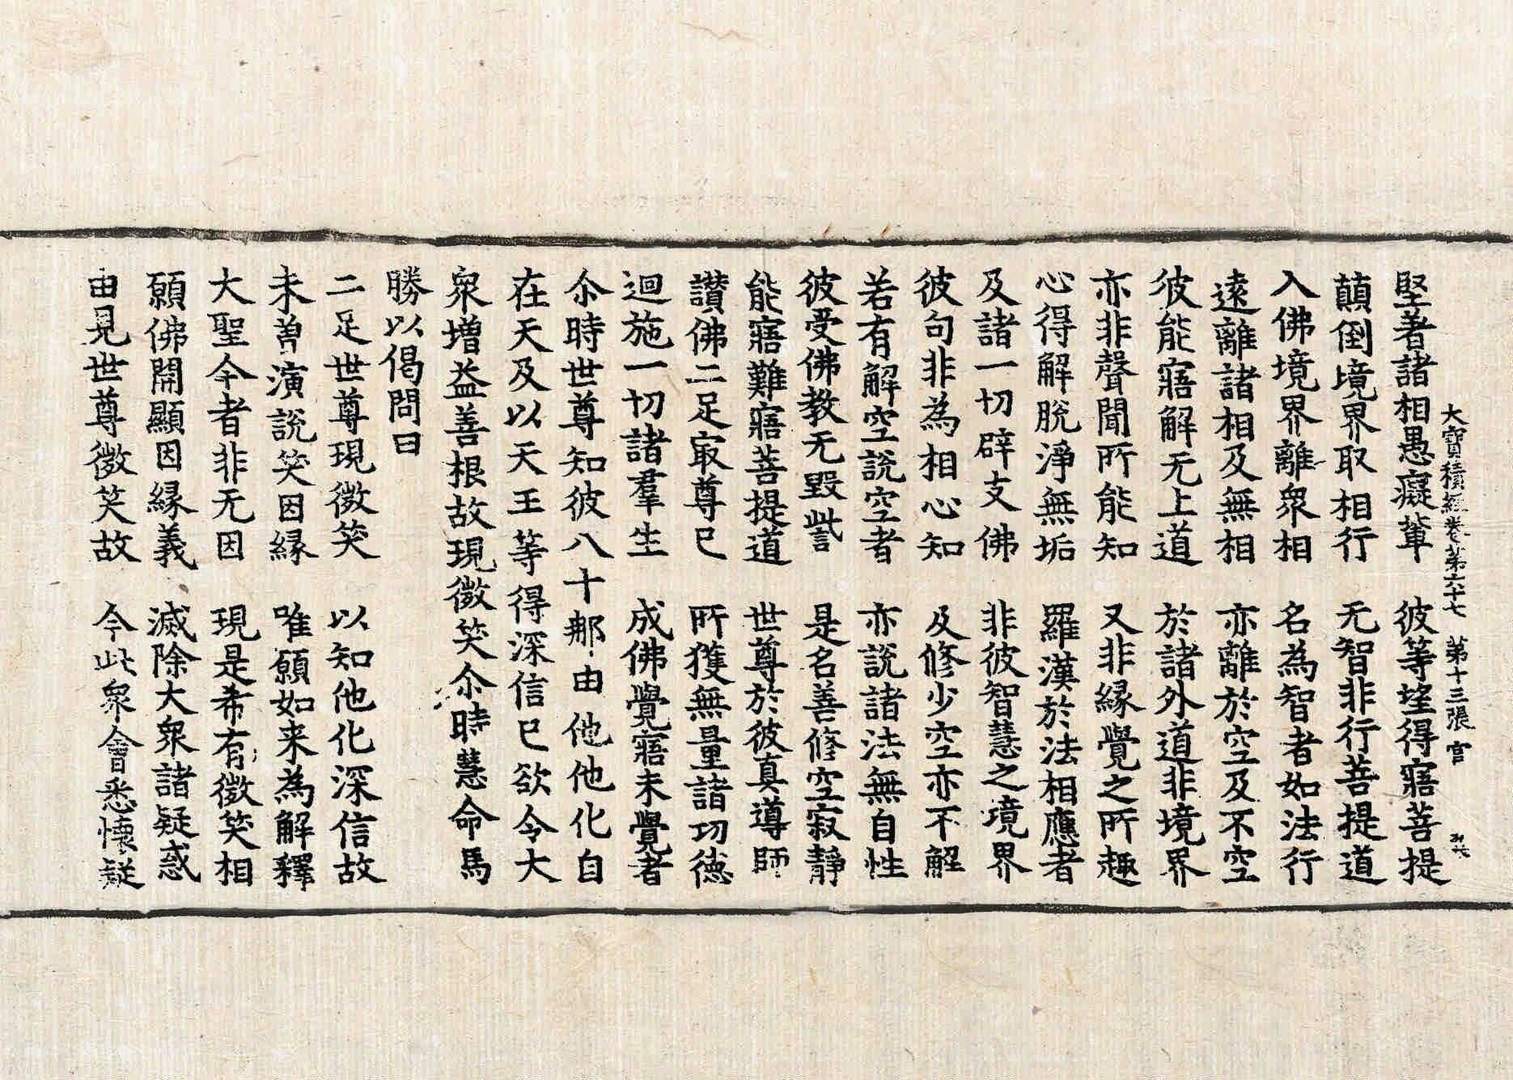 大寶積經卷第六十七　第十三張　官
堅著諸相愚癡輩　彼等望得寤菩提
顛倒境界取相行　无智非行菩提道
入佛境界離衆相　名為智者如法行
遠離諸相及無相　亦離於空及不空
彼能寤解无上道　於諸外道非境界
亦非聲聞所能知　又非緣覺之所趣
心得解脫淨無垢　羅漢於法相應者
及諸一切辟支佛　非彼智慧之境界
彼句非為相心知　及修少空亦不解
若有解空說空者　亦說諸法無自性
彼受佛教无毀訾　是名善修空寂靜
能寤難寤菩提道　世尊於彼真導師
讚佛二足冣尊已　所獲無量諸功德
迴施一切諸羣生　成佛覺寤未覺者
尒時世尊知彼八十那由他他化自
在天及以天王等得深信已欲令大
衆增益善根故現微笑尒時慧命馬
勝以偈問曰
二足世尊現微笑　以知他化深信故
未曾演說笑因緣　唯願如来為解釋
大聖今者非无因　現是希有微笑相
願佛開顯因緣義　滅除大衆諸疑惑
由見世尊微笑故　今此衆會悉懷疑